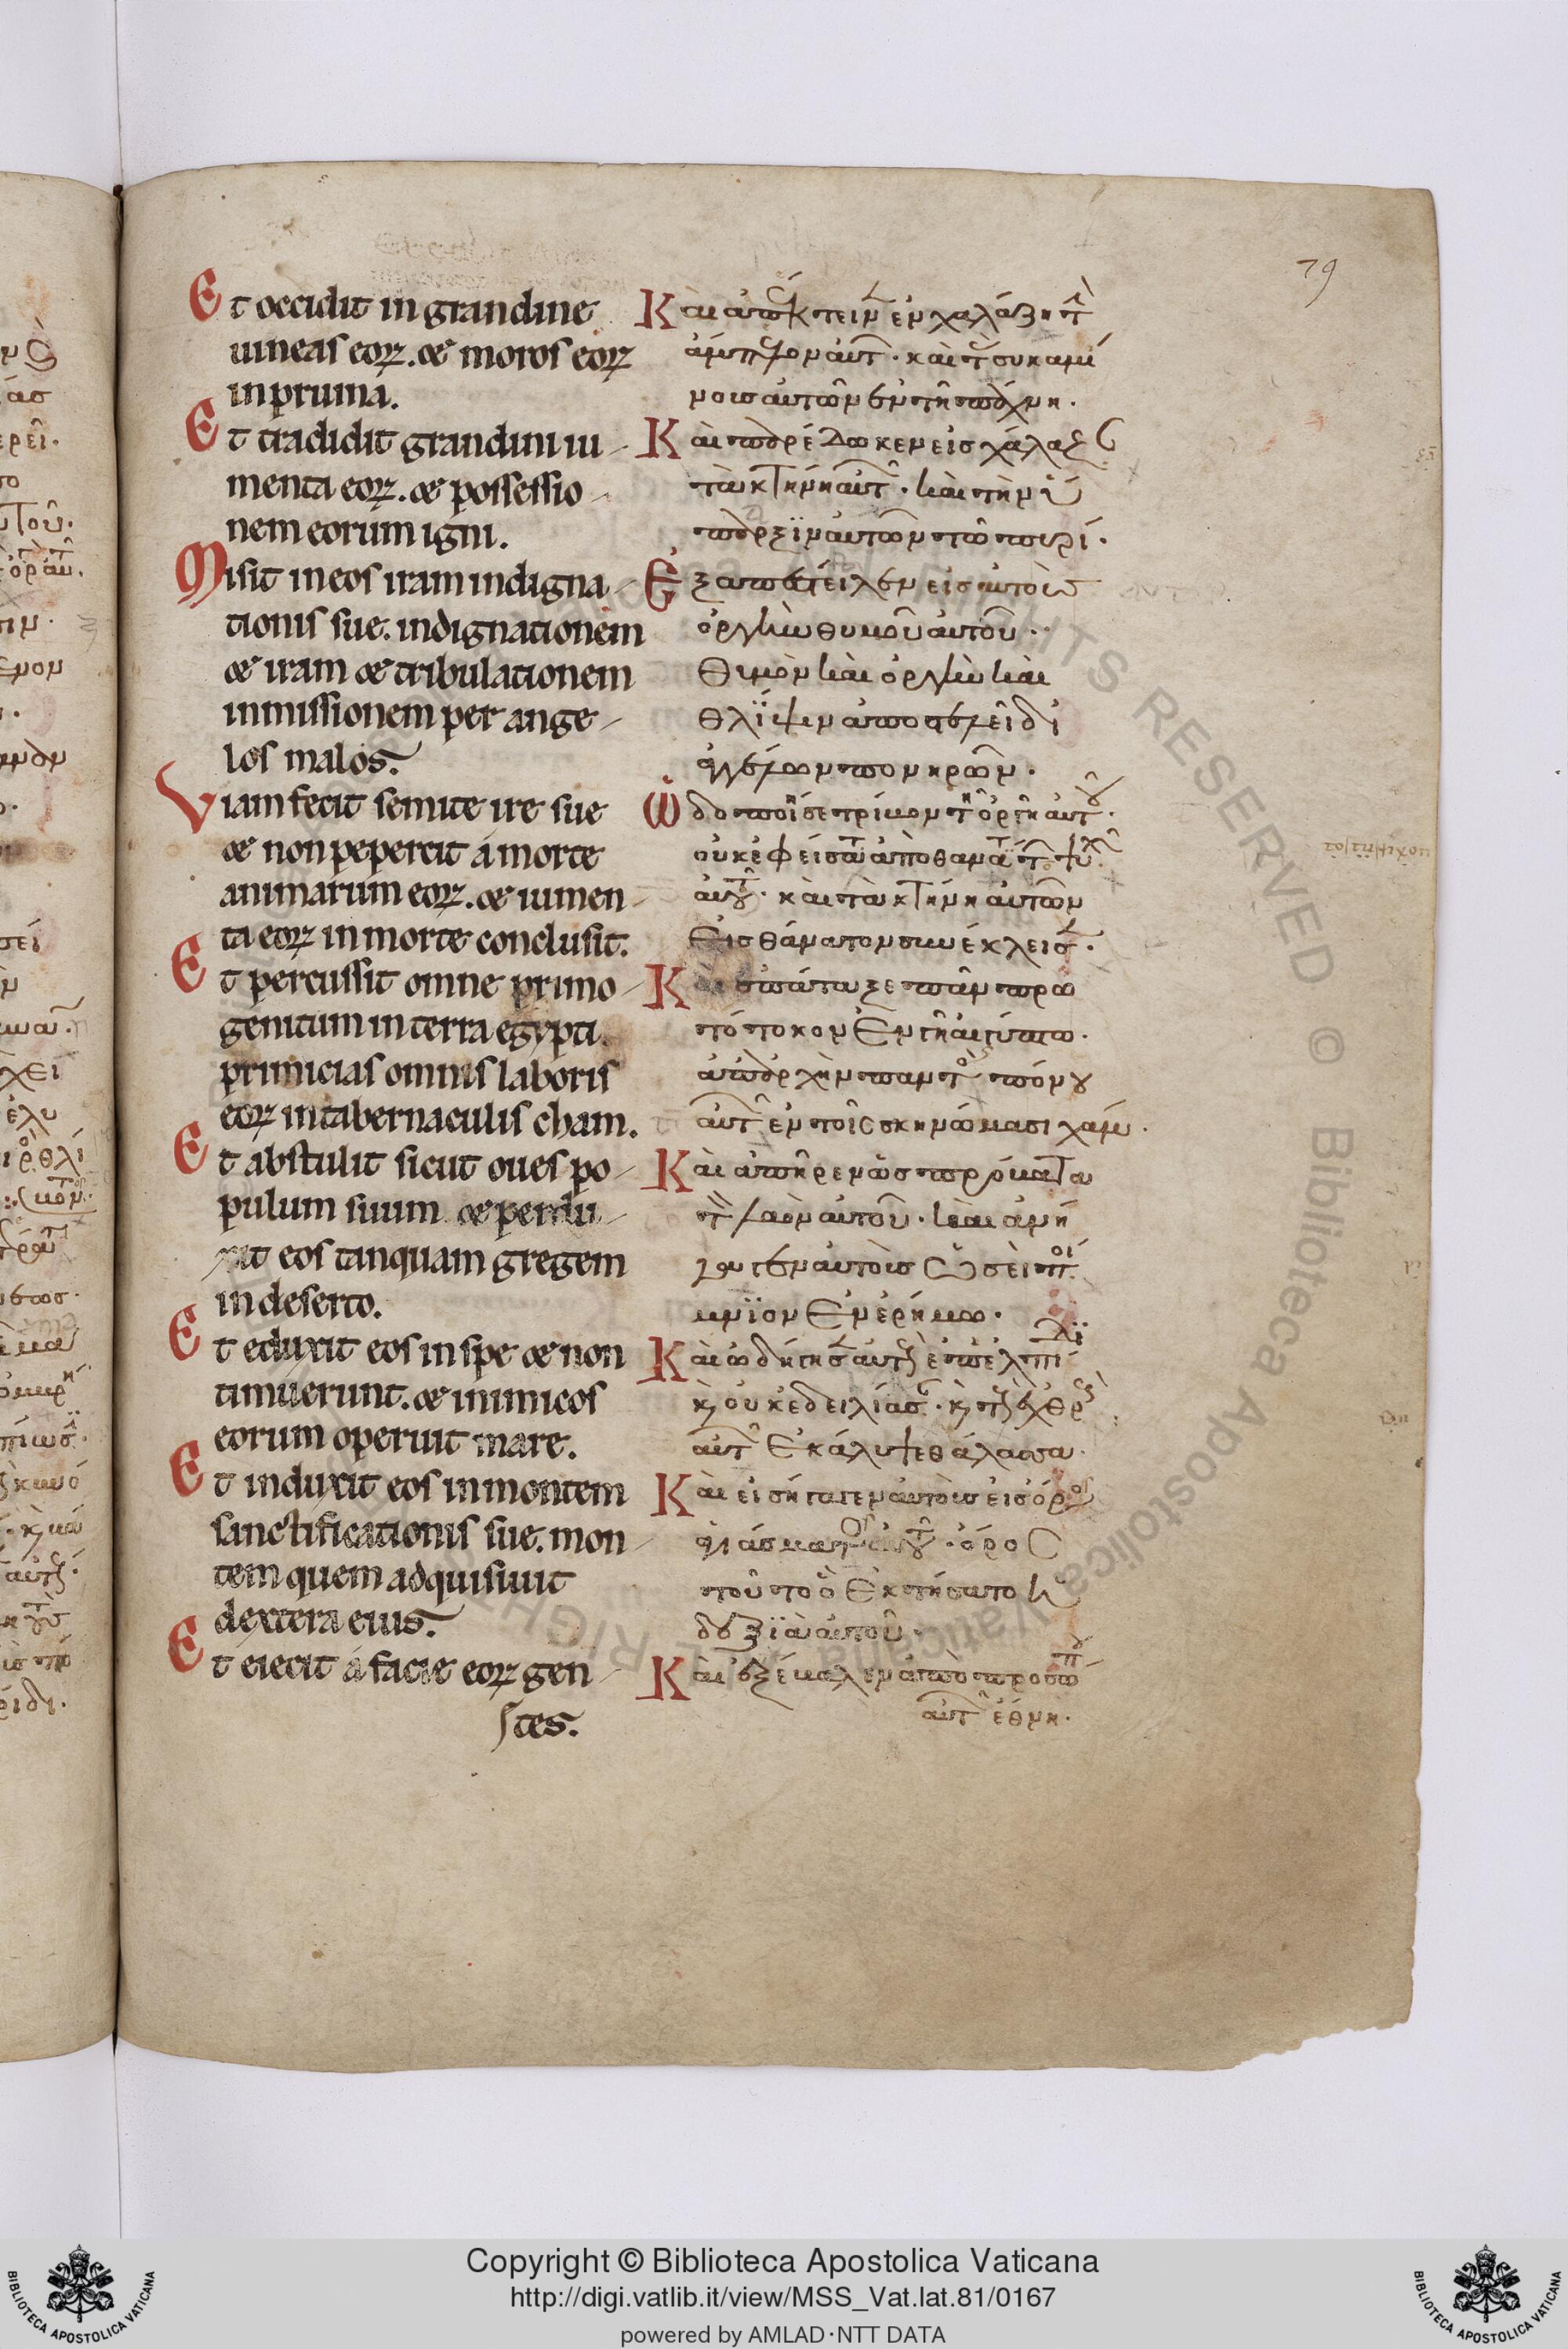 79
Et occidit in grandine
uineas eoꝝ. & moros eoꝝ
in pruina.
Et tradidit grandini iu-
menta eoꝝ. & possessio-
nem eorum igni.
Misit in eos iram indigna-
tionis sue. indignationem
& iram & tribulationem
inmissionem per ange-
los malos.
Viam fecit semite ire sue
& non pepercit á morte
animarum eoꝝ. & iumen-
ta eoꝝ in morte conclusit.
Et percussit omne primo-
genitum in terra egypti.
primicias omnis laboris
eoꝝ in tabernaculis cham.
Et abstulit sicut oues po-
pulum suum & perdu-
xit eos tanquam gregem
in deserto.
Et eduxit eos in spe & non
timuerunt. & inimicos
eorum operuit mare.
Et induxit eos in montem
sanctificationis sue. mon-
tem quem adquisiuit
dextera eius.
Et eiecit á facie eoꝝ gen-
tes.
Και ἐν χαλάζη
ἄμπελον αὐτ. καὶ συκαμί
νοισ αὐτῶν ἐν τῆ πάχνη.
Καὶ παρέδωκεν εἰσ χάλαζ
τὰ κτήνη αὐτ. καὶ τὴν
ὕπαρξϊν αὐτῶν τῶ πυρί.
Ἐξαπέστειλεν εἰσ αὐτοὺσ
ὀργὴν θυμοῦ αὐτοῦ.
Θυμὸν καὶ ὀργὴν καὶ
θλῖψιν ἀποστελεῖ δι
ἀγγέλων πονηρῶν.
Ὡδοποίησε τρίβον τῆ ὀργῆ αὐτ.
οὐκ ἐφείσατ ἀπὸ θανάτ
αυτ. καὶ τὰ κτήνη αὐτῶν
Εἰσ θάνατον συνέκλεισ.
Καὶ ἐπάταξε πᾶν πρω
τότοκον Ἐν γῆ αἰγύπτω.
ἀπαρχὴν παντ πόνου
αὐτ ἐν τοῖσ σκηνώμασι χάμ.
Καὶ ἀπῆρεν ὡσ πρόβατα
τ λαὸν αὐτοῦ. καὶ ἀνή
γαγεν αὐτοὺσ Ὡσεὶ ποί
μνϊον Ἐν ἐρήμω.
Καὶ ὡδήγησ αὐτ ἐπ ἐλπι
κ οὐκ ἐδειλίασ. κ τ ἐχθρ
αὐτ Ἐκάλυψε θάλασσα.
Καὶ εἰσήγαγεν αὐτοὺσ εἰσ ὄρος
ἁγιάσματος αυτ. ὄρος
τοῦτο ὃ Ἐκτήσατο ἡ
δεξϊὰ αὐτοῦ.
Καὶ ἐξέβαλεν ἀπὸ προσώπου
αὐτ ἔθνη.
Copyright © Biblioteca Apostolica Vaticana
http://digi.vatlib.it/view/MSS_Vat.lat.81/0167
powered by AMLAD·NTT DATA
BIBLIOTECA APOSTOLICA VATICANA
BIBLIOTECA APOSTOLICA VATICANA